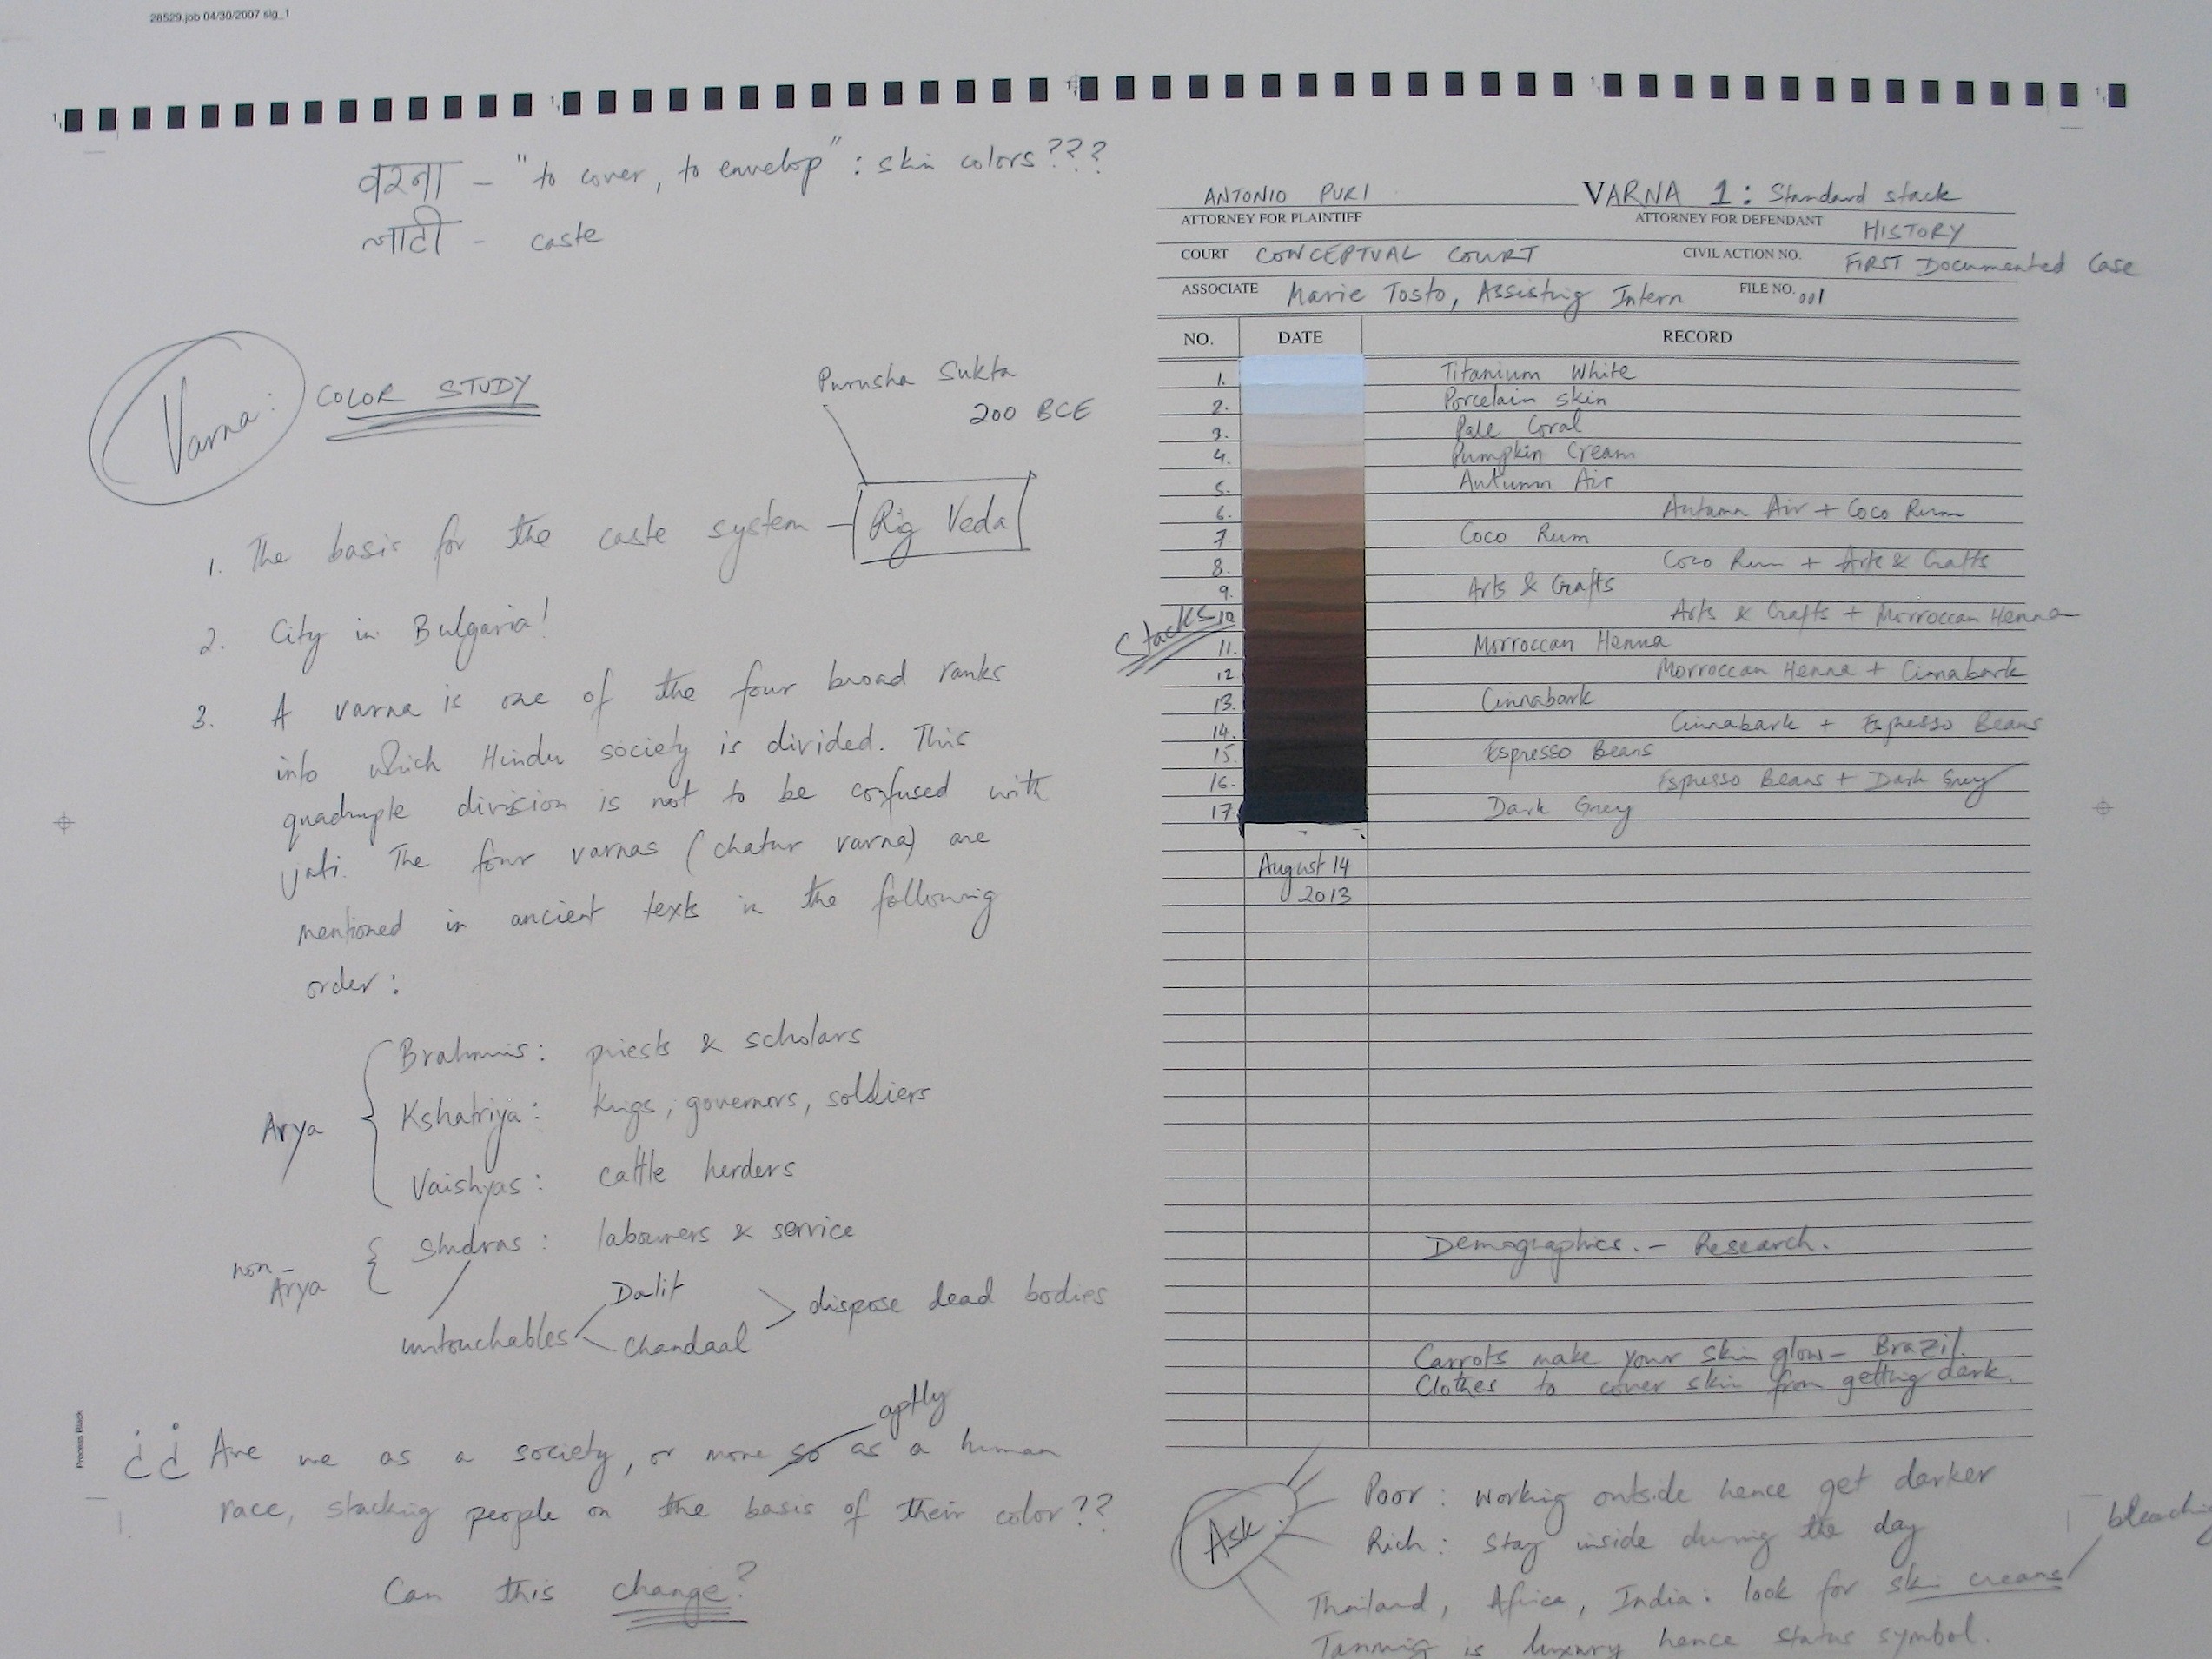 28529.job 04/30/2007 sig_1
वरना - "to cover, to envelop" : skin colors???
जाटी - caste
Varna: COLOR STUDY
Purusha Sukta
200 BCE
1. The basis for the caste system - Rig Veda
2. City in Bulgaria!
3. A varna is one of the four broad ranks
into which Hindu society is divided. This
quadruple division is not to be confused with
jati. The four varnas (chatur varna) are
mentioned in ancient texts in the following
order :
Arya
Brahmnis : priests & scholars
Kshatriya : kings, governors, soldiers
Vaishyas : cattle herders
non-
Arya
Shudras : labourers & service
untouchables
Dalit
Chandaal
dispose dead bodies
aptly
¿¿ Are we as a society, or more so as a human
race, stacking people on the basis of their color??
Can this change?
Process Black
ANTONIO PURI VARNA 1 : Standard stack
ATTORNEY FOR PLAINTIFF ATTORNEY FOR DEFENDANT HISTORY
COURT CONCEPTUAL COURT CIVIL ACTION NO. FIRST Documented Case
ASSOCIATE Marie Tosto, Assisting Intern FILE NO. 001
NO. DATE RECORD
1. Titanium White
2. Porcelain skin
3. Pale Coral
4. Pumpkin Cream
5. Autumn Air
6. Autumn Air + Coco Rum
7 Coco Rum
8. Coco Rum + Arts & Crafts
9. Arts & Crafts
Stacks
10 Arts & Crafts + Morroccan Henna
11. Morroccan Henna
12 Morroccan Henna + Cinnabark
13. Cinnabark
14. Cinnabark + Espresso Beans
15. Espresso Beans
16. Espresso Beans + Dark Grey
17. Dark Grey
August 14
2013
Demographics. - Research.
Carrots make your skin glow - Brazil.
Clothes to cover skin from getting dark.
Ask:
Poor : working outside hence get darker
Rich : stay inside during the day
Thailand, Africa, India : look for skin creams
Tanning is luxury hence status symbol.